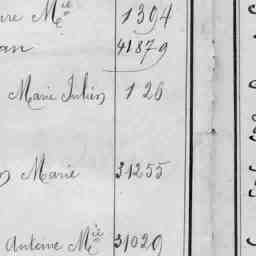 re Mie 1394
an 41879
Marie Julien 126
n Marie 31255
Antoine Mie 31029